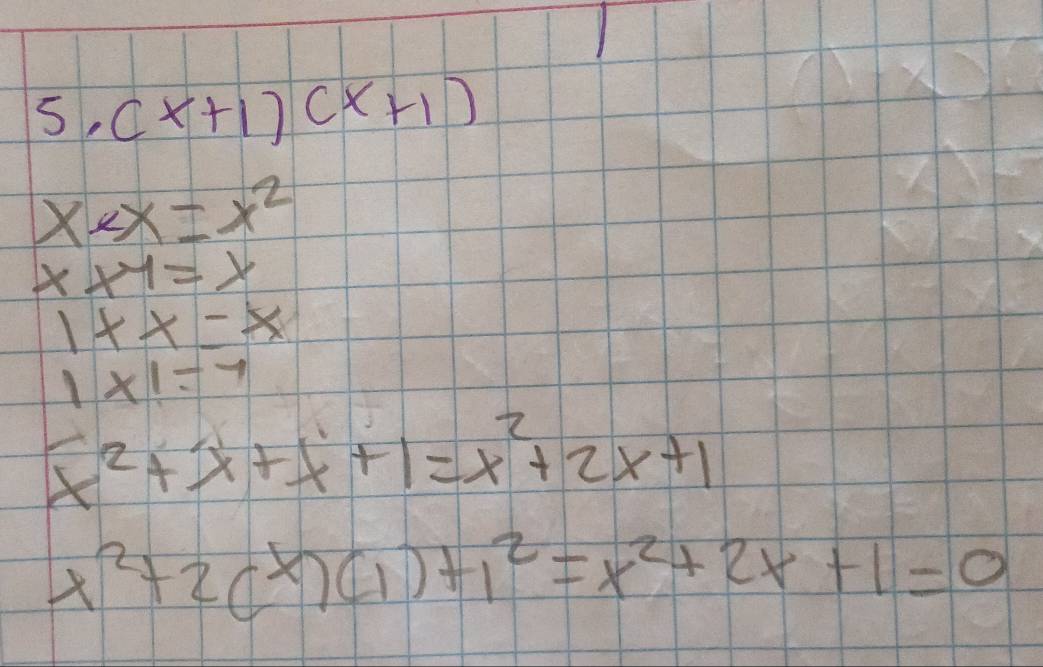 5. (x+1) (x+1)
x × x = x²
x × 1 = x
1 × x = x
1 × 1 = 1
x² + x + x + 1 = x² + 2x + 1
x² + 2(x)(1) + 1² = x² + 2x + 1 = 0